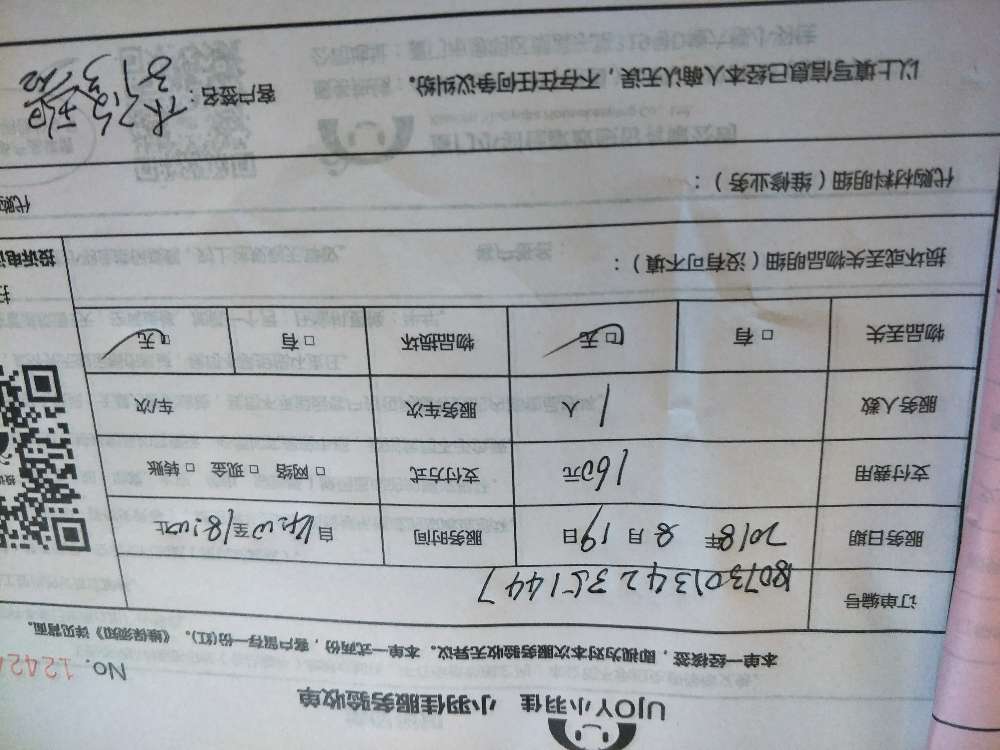 UJOY小羽佳 小羽佳服务验收单
本单一经核签，即视为对本次服务验收无异议。本单一式两份，客户留存一份(红)。《维保须知》详见背面。
No. 12424
订单编号 18073013423251447
服务日期 2018年 8月 19日 服务时间
支付费用 160元 支付方式 □网络 □现金 □转账
服务人数 1人 服务车次 车次
物品丢失 □有 □无 物品损坏 □有 □无
损坏或丢失物品明细（没有可不填）：
投诉电话
代购材料明细（维修业务）：
代购
以上填写信息已经本人确认无误，不存在任何争议纠纷。 客户签名：